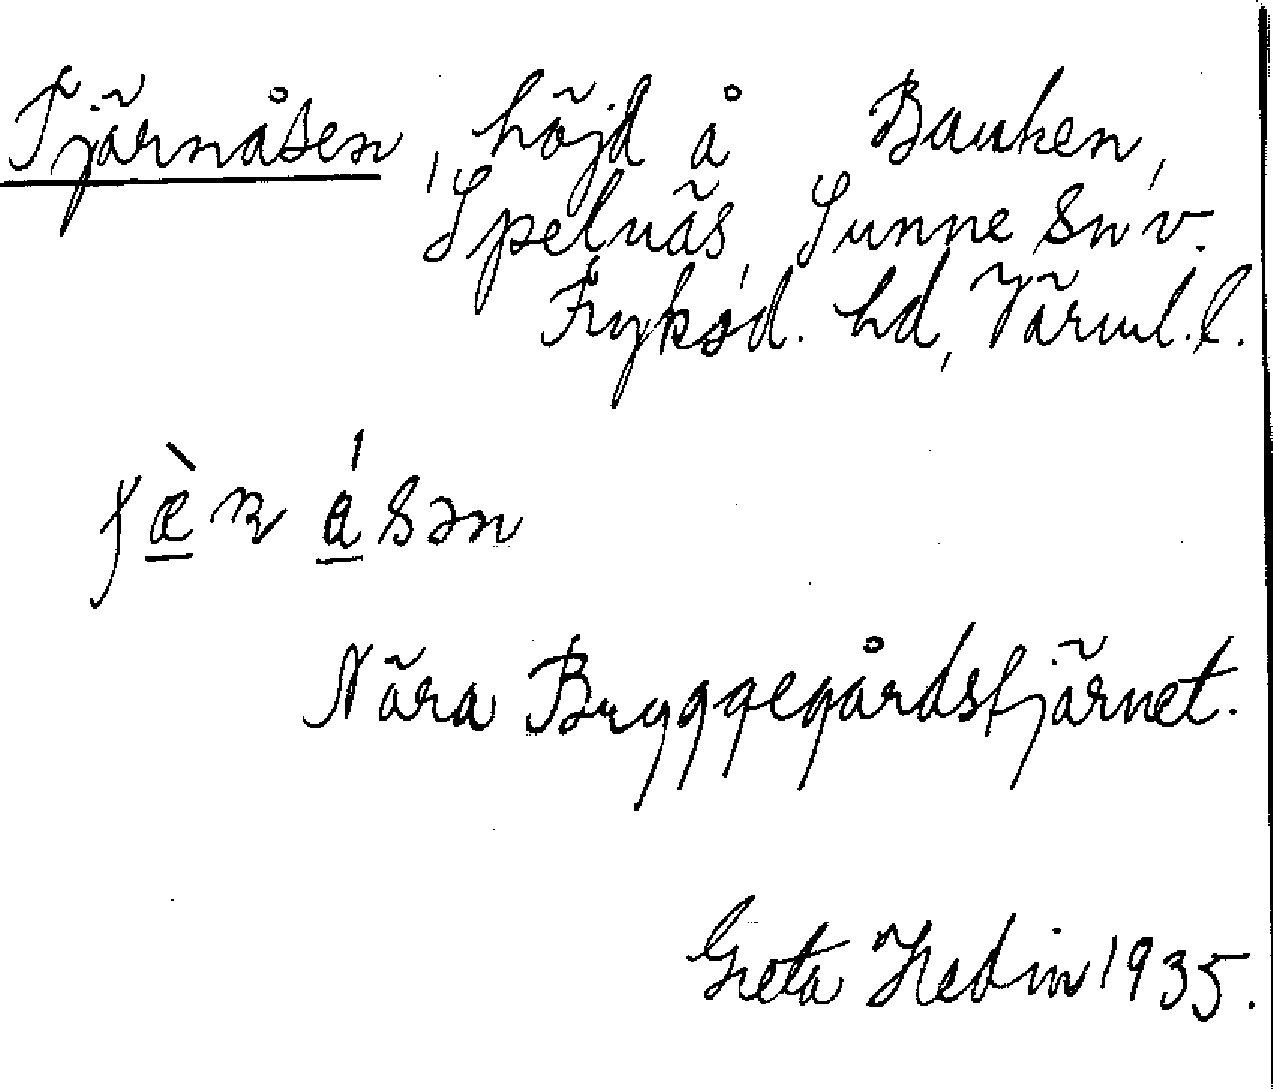 Tjärnåsen, höjd å Bauken,
Spelnäs, Sunne sn v.
Fryksd. hd, Värml. l.
Nära Byggegårdstjärnet.
Greta Hedin 1935.